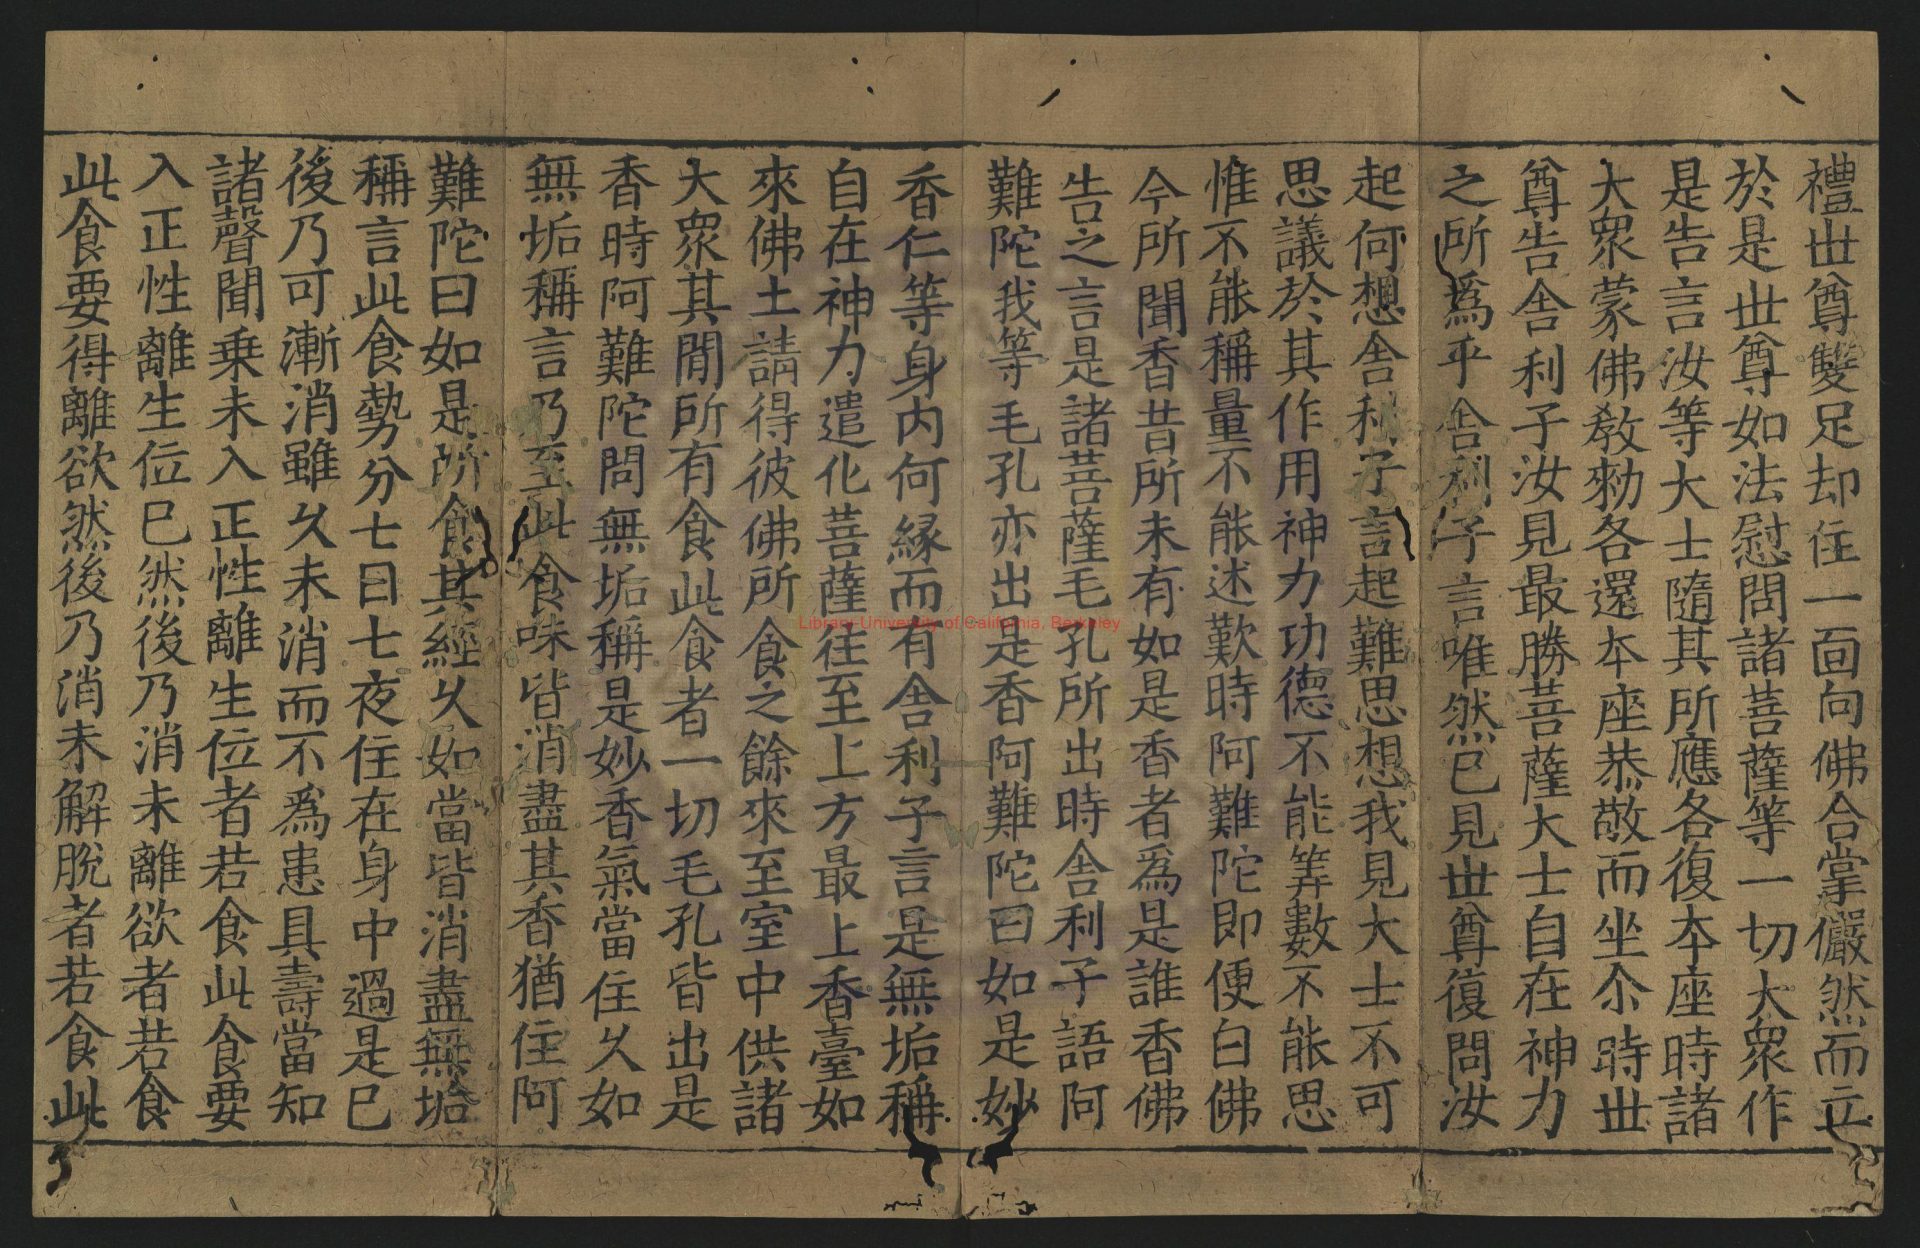 禮世尊雙足却住一面向佛合掌儼然而立
於是世尊如法慰問諸菩薩等一切大衆作
是告言汝等大士隨其所應各復本座時諸
大衆蒙佛教勑各還本座恭敬而坐尒時世
尊告舍利子汝見最勝菩薩大士自在神力
之所爲乎舍利子言唯然已見世尊復問汝
起何想舍利子言起難思想我見大士不可
思議於其作用神力功德不能筭數不能思
惟不能稱量不能述歎時阿難陀即便白佛
今所聞香昔所未有如是香者爲是誰香佛
告之言是諸菩薩毛孔所出時舍利子語阿
難陀我等毛孔亦出是香阿難陀曰如是妙
香仁等身内何緣而有舍利子言是無垢稱
自在神力遣化菩薩往至上方最上香臺如
來佛土請得彼佛所食之餘來至室中供諸
大衆其閒所有食此食者一切毛孔皆出是
香時阿難陀問無垢稱是妙香氣當住久如
無垢稱言乃至此食味皆消盡其香猶住阿
難陀曰如是所食其經久如當皆消盡無垢
稱言此食勢分七日七夜住在身中過是已
後乃可漸消雖久未消而不爲患具壽當知
諸聲聞乘未入正性離生位者若食此食要
入正性離生位已然後乃消未離欲者若食
此食要得離欲然後乃消未解脫者若食此
Library-University of California, Berkeley